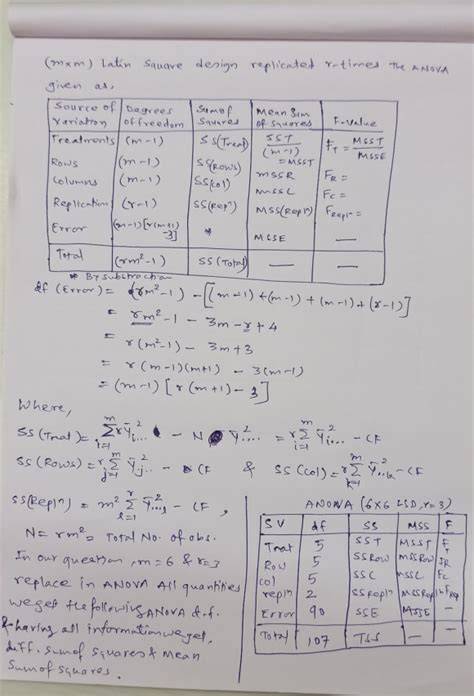 (m×m) Latin Square design replicated r-times The ANOVA
given as,
Source of Variation | Degrees of freedom | Sum of Squares | Mean Sum of Squares | F-value
Treatments | (m-1) | SS(Treat) | SST/(m-1) = MSST | F_T = MSST/MSSE
Rows | (m-1) | SS(Rows) | MSSR | F_R =
Columns | (m-1) | SS(Col) | MSSC | F_C =
Replication | (r-1) | SS(Repⁿ) | MSS(Repⁿ) | F_Repⁿ =
Error | (m-1)[r(m+1)-3] | * | MSSE | —
Total | (rm²-1) | SS(Total) | — | —
* By substraction
df (Error) = (rm²-1) - [(m-1)+(m-1)+(m-1)+(r-1)]
= rm²-1 - 3m-r+4
= r(m²-1) - 3m+3
= r(m-1)(m+1) - 3(m-1)
= (m-1)[r(m+1)-3]
Where,
SS(Treat) = Σ_{i=1}^{m} r Ȳ_{i...}² - N Ȳ_{....}² = r Σ_{i=1}^{m} Ȳ_{i...}² - CF
SS(Rows) = r Σ_{j=1}^{m} Ȳ_{.j..}² - CF & SS(Col) = r Σ_{k=1}^{m} Ȳ_{..k.}² - CF
SS(Repⁿ) = m² Σ_{l=1}^{r} Ȳ_{...l}² - CF,
N = rm² = Total No. of obs.
In our question, m=6 & r=3
replace in ANOVA All quantities
we get the following ANOVA d.f.
& having all information we get
diff. sum of squares & Mean
Sum of squares.
ANOVA (6×6 LSD, r=3)
SV | df | SS | MSS | F
Treat | 5 | SST | MSST | F
Row | 5 | SSRow | MSSRow | F_R
Col | 5 | SSC | MSSC | F_C
Repⁿ | 2 | SSRepⁿ | MSSRepⁿ | F_Rep
Error | 90 | SSE | MSSE | —
Total | 107 | TSS | — | —